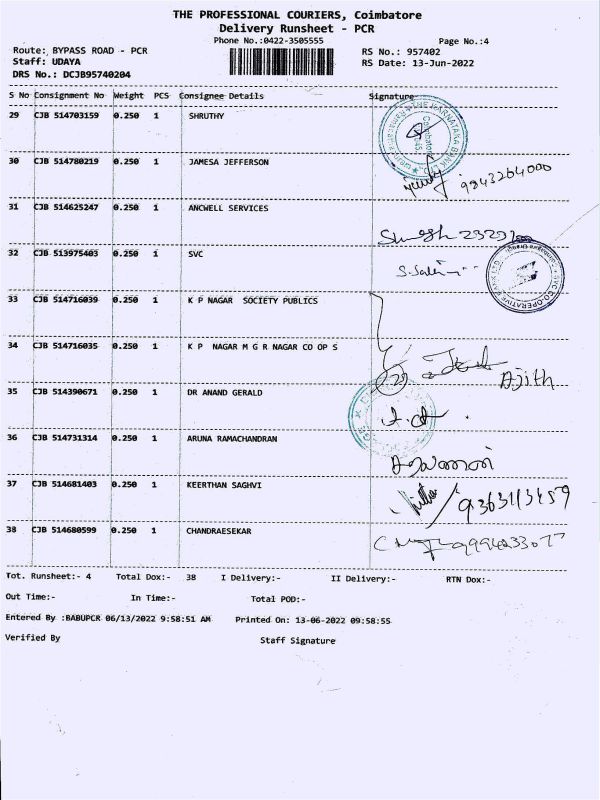 THE PROFESSIONAL COURIERS, Coimbatore
Delivery Runsheet - PCR
Phone No.:0422-3505555
Page No.:4
Route: BYPASS ROAD - PCR
RS No.: 957402
Staff: UDAYA
RS Date: 13-Jun-2022
DRS No.: DCJB95740204
S No Consignment No Weight PCS Consignee Details Signature
29 CJB 514703159 0.250 1 SHRUTHY
THE KARNATAKA BANK LTD. Coimbatore
30 CJB 514780219 0.250 1 JAMESA JEFFERSON
9843264000
31 CJB 514625247 0.250 1 ANCWELL SERVICES
32 CJB 513975403 0.250 1 SVC
SVC CO-OPERATIVE BANK LTD.
33 CJB 514716039 0.250 1 K P NAGAR SOCIETY PUBLICS
34 CJB 514716035 0.250 1 K P NAGAR M G R NAGAR CO OP S
Ajith
35 CJB 514390671 0.250 1 DR ANAND GERALD
36 CJB 514731314 0.250 1 ARUNA RAMACHANDRAN
37 CJB 514681403 0.250 1 KEERTHAN SAGHVI
38 CJB 514680599 0.250 1 CHANDRAESEKAR
Tot. Runsheet:- 4 Total Dox:- 38 I Delivery:- II Delivery:- RTN Dox:-
Out Time:- In Time:- Total POD:-
Entered By :BABUPCR 06/13/2022 9:58:51 AM Printed On: 13-06-2022 09:58:55
Verified By Staff Signature